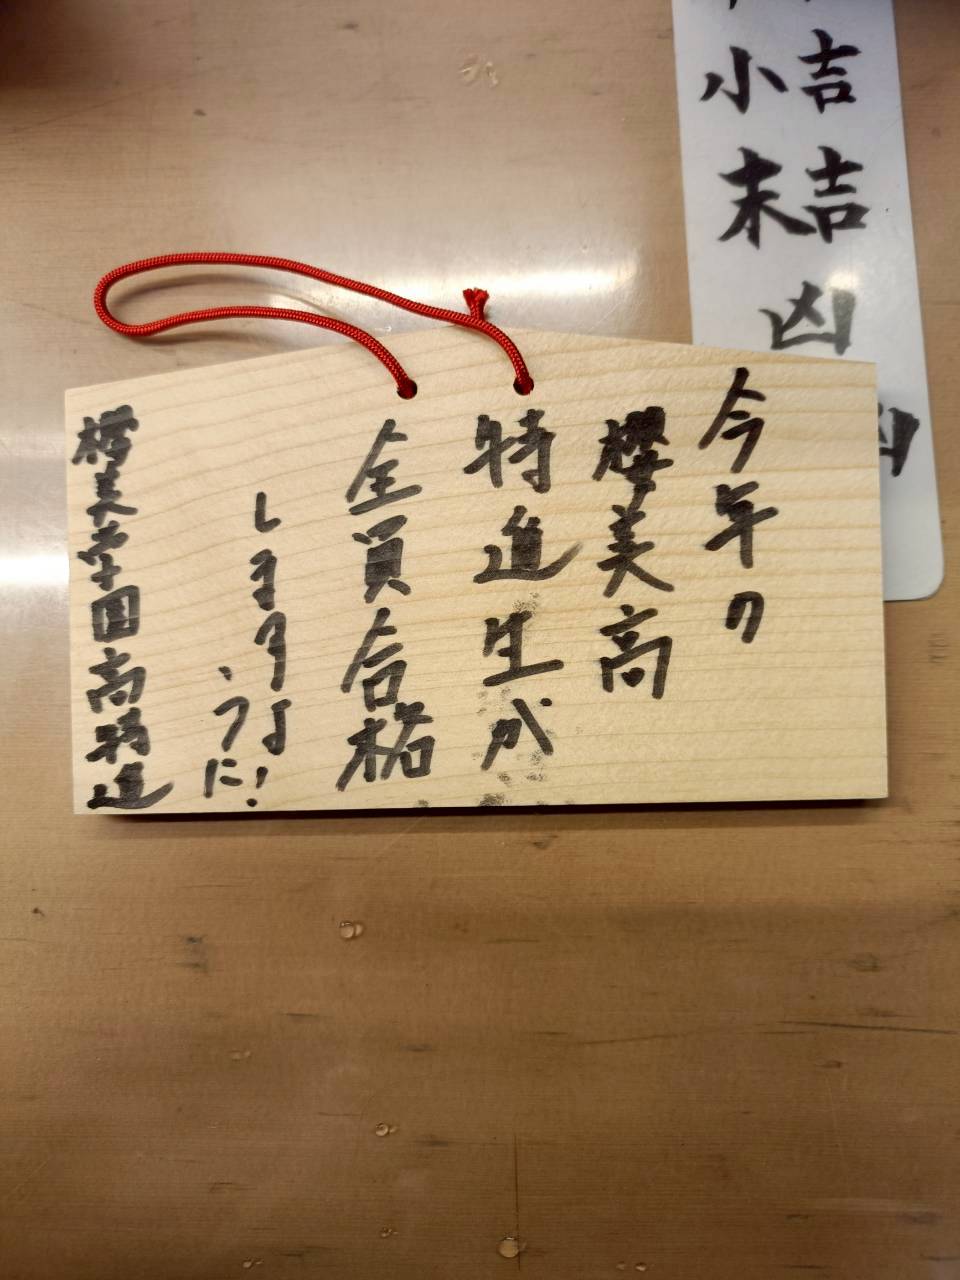 小吉
末吉
凶
今年の
櫻美高
特進生が
全員合格
しますよ
うに!
櫻美学園高特進